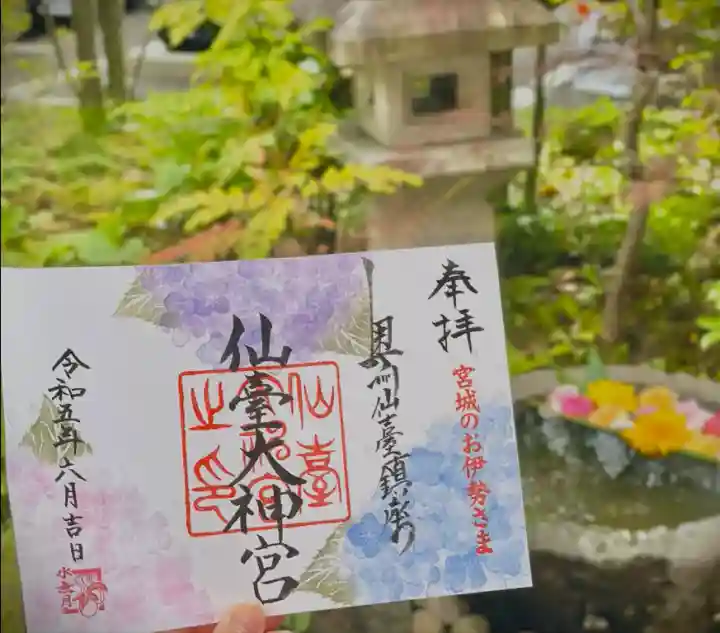 奉拝
宮城のお伊勢さま
奥州仙臺鎮座
仙臺大神宮
仙臺
之印
令和五年六月吉日
水無月